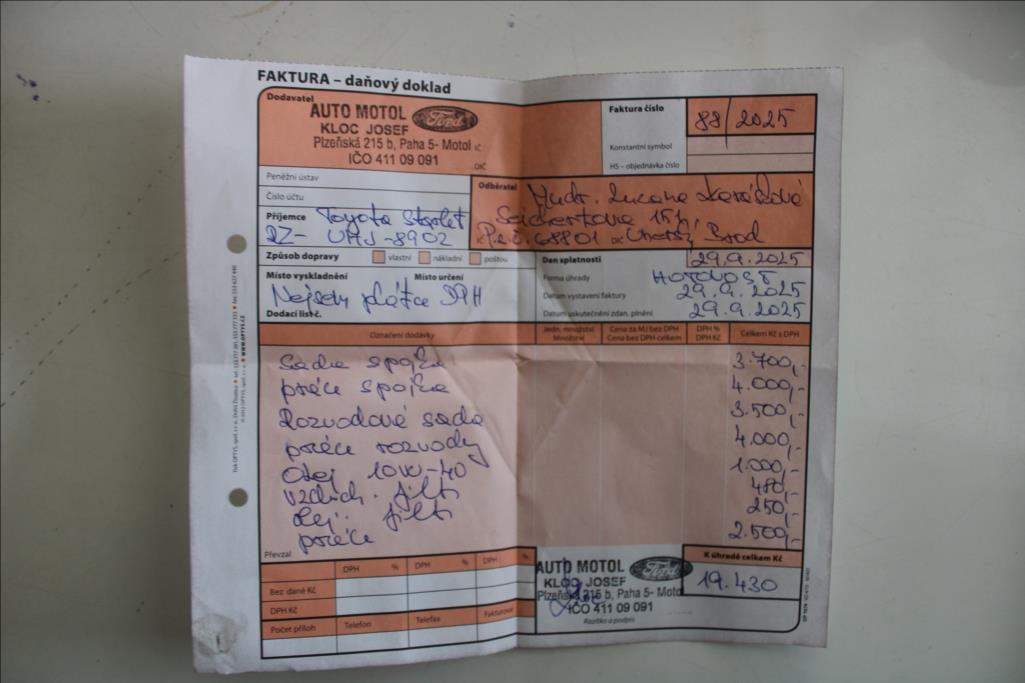 FAKTURA – daňový doklad
Dodavatel
AUTO MOTOL Ford
KLOC JOSEF
Plzeňská 215 b, Paha 5- Motol
IČO 411 09 091
DIČ
Faktura číslo 88/2025
Konstantní symbol
HS – objednávka číslo
Peněžní ústav
Číslo účtu
Odběratel Mudr. Lucie
15
68801 Uherský Brod
Příjemce Toyota Starlet
RZ- UHJ-8902
Způsob dopravy vlastní nákladní poštou
Den splatnosti 29.9.2025
Forma úhrady HOTOVOST
Datum vystavení faktury 29.9.2025
Datum uskutečnění zdan. plnění 29.9.2025
Místo vyskladnění Místo určení
Nejsem plátce DPH
Dodací list č.
Označení dodávky Jedn. množství Množství Cena za MJ bez DPH Cena bez DPH celkem DPH % DPH Kč Celkem Kč s DPH
Sada spojka 3.700,-
práce spojka 4.000,-
Rozvodová sada 3.500,-
práce rozvody 4.000,-
Olej 10W-40 1.000,-
vzduch. filtr 480,-
olej. filtr 250,-
práce 2.500,-
Převzal
DPH % DPH % DPH %
Bez daně Kč
DPH Kč
Počet příloh Telefon Telefax Fakturoval
AUTO MOTOL Ford
KLOC JOSEF
Plzeňská 215 b, Paha 5- Motol
IČO 411 09 091
Razítko a podpis
K úhradě celkem Kč
19.430